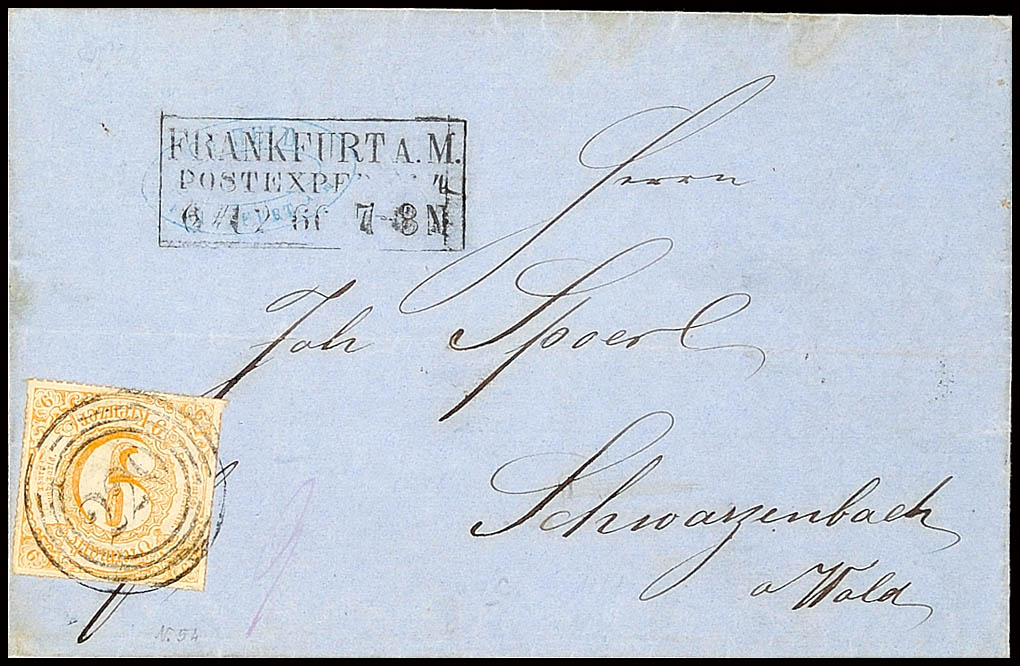 FRANKFURT A. M.
POSTEXPE
7-8 N
Herrn
Joh Spoerl
Schwarzenbach
a Wald
N. 54